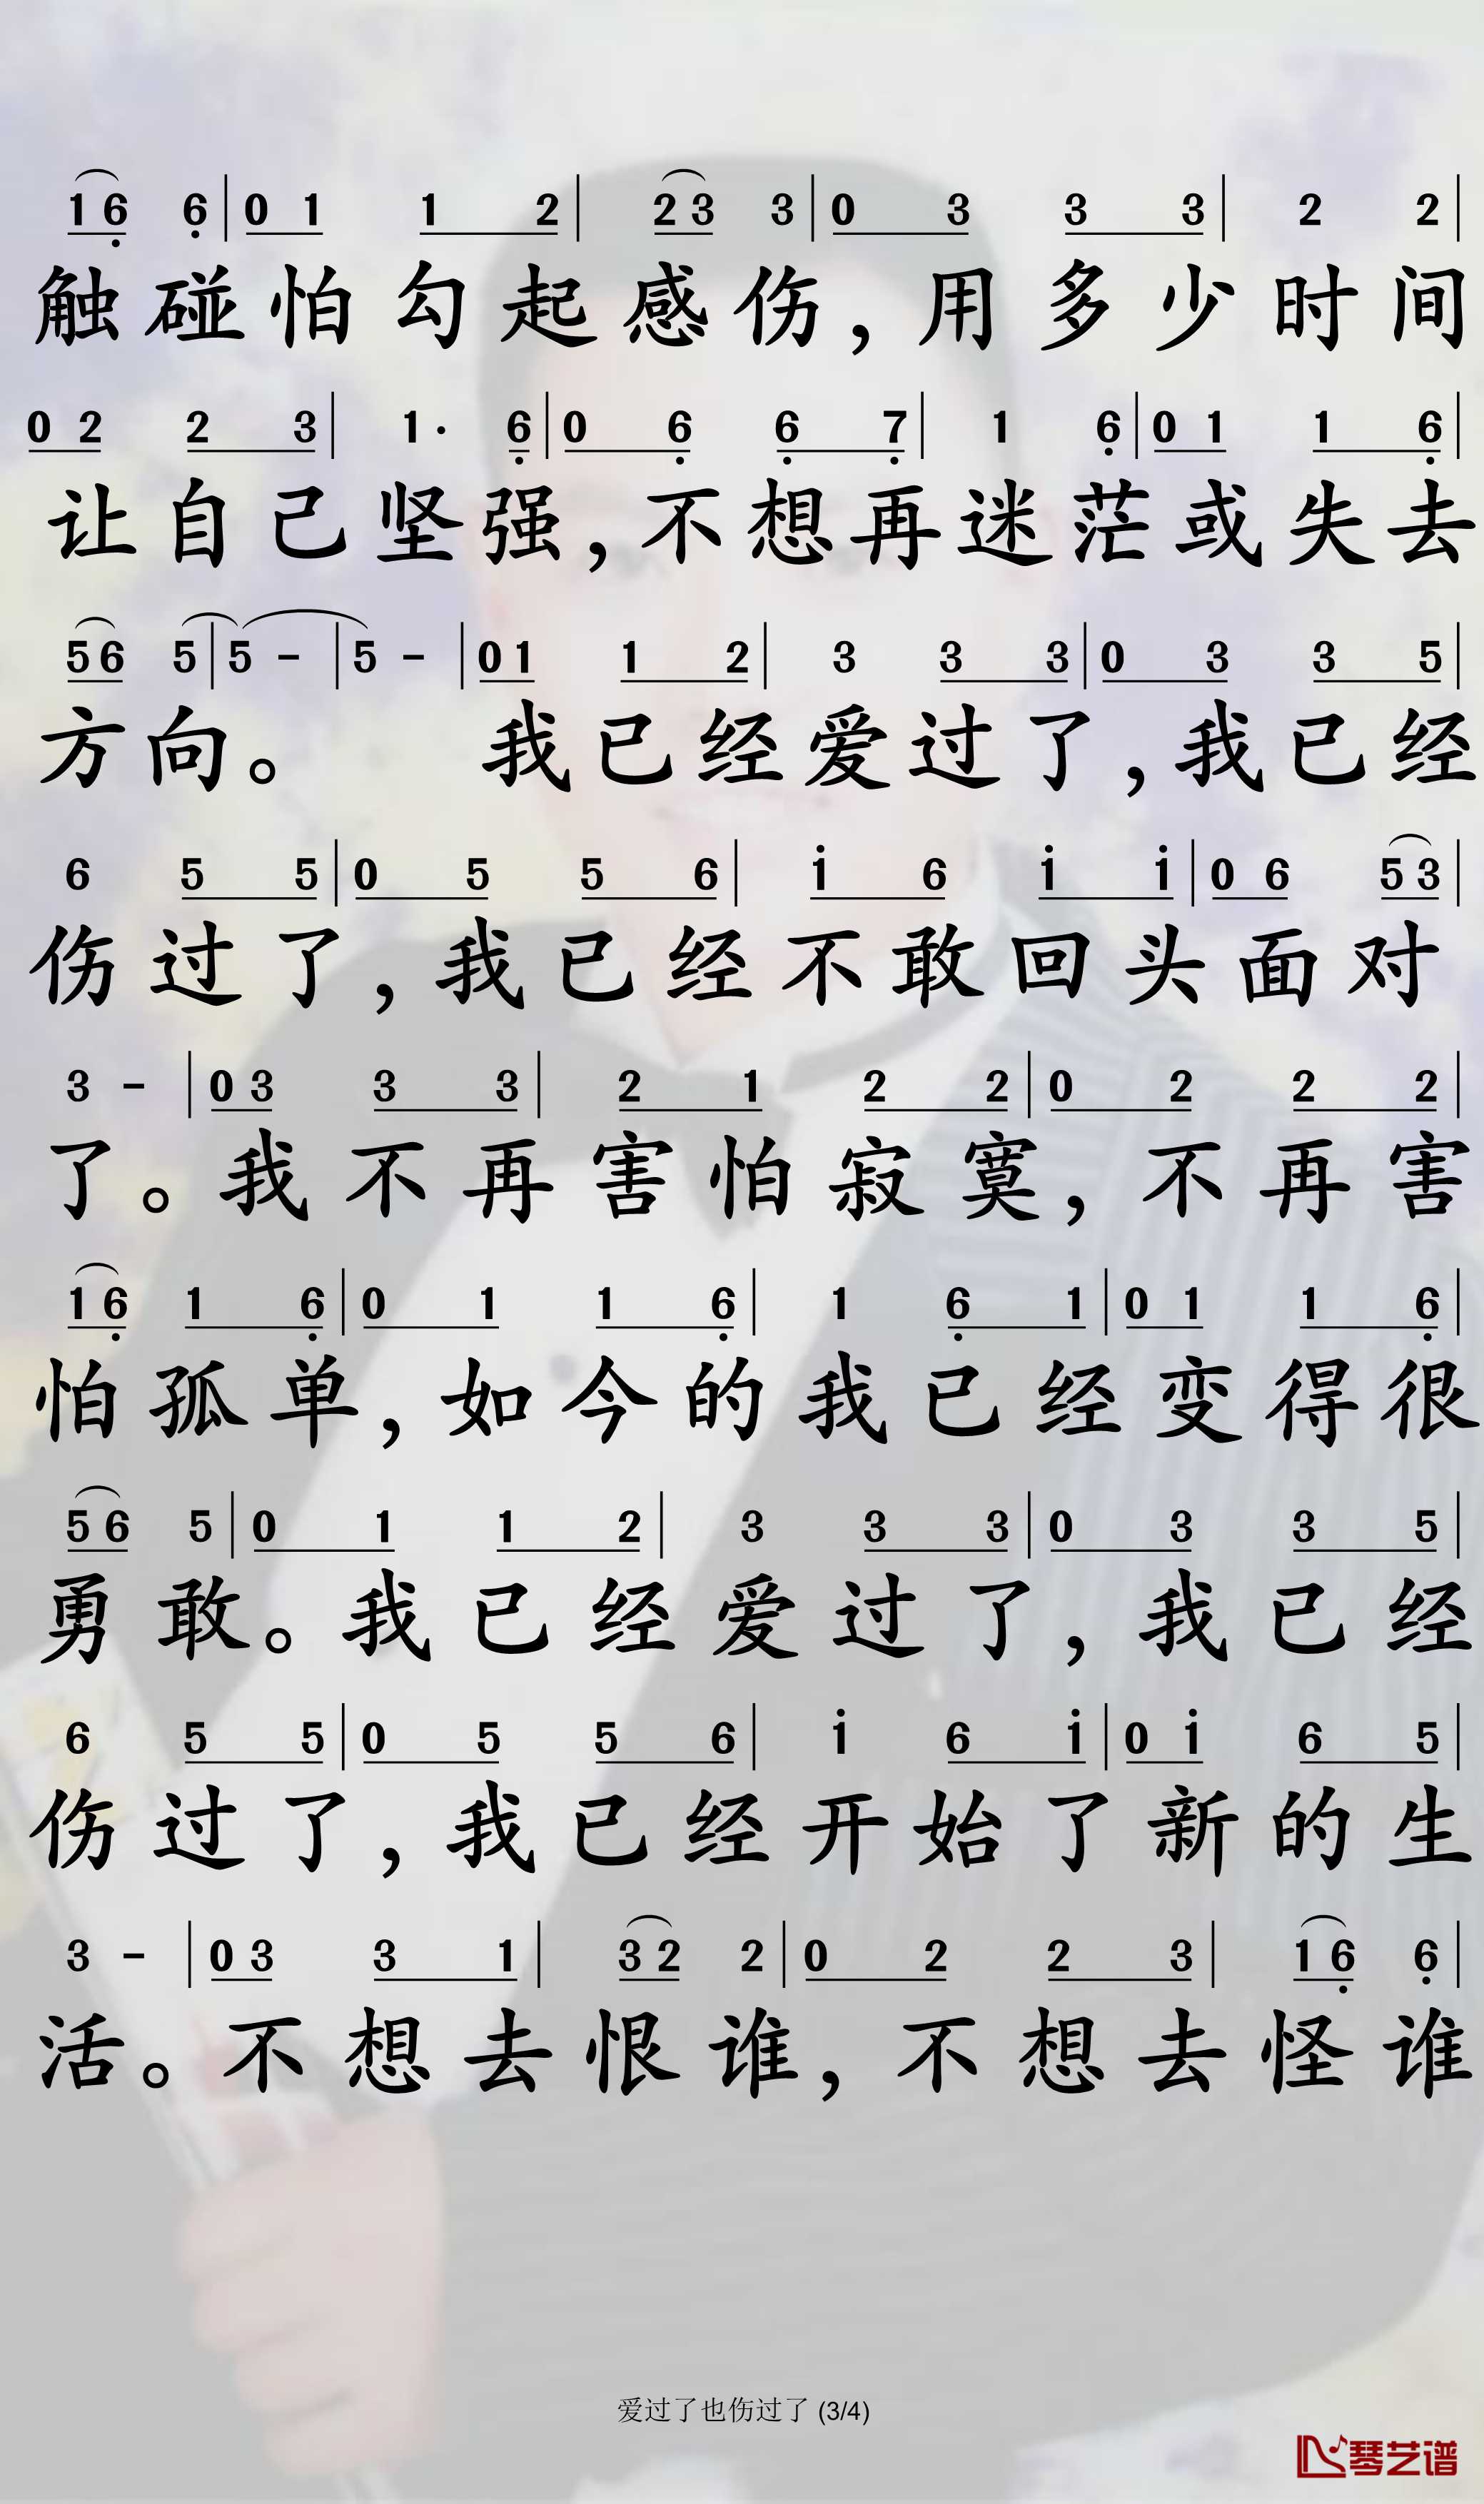 1 6 6 | 0 1 1 2 | 2 3 3 | 0 3 3 3 | 2 2 |
触碰怕勾起感伤，用多少时间
0 2 2 3 | 1· 6 | 0 6 6 7 | 1 6 | 0 1 1 6 |
让自己坚强，不想再迷茫或失去
5 6 5 | 5 - | 5 - | 0 1 1 2 | 3 3 3 | 0 3 3 5 |
方向。 我已经爱过了，我已经
6 5 5 | 0 5 5 6 | i 6 i i | 0 6 5 3 |
伤过了，我已经不敢回头面对
3 - | 0 3 3 3 | 2 1 2 2 | 0 2 2 2 |
了。我不再害怕寂寞，不再害
1 6 1 6 | 0 1 1 6 | 1 6 1 | 0 1 1 6 |
怕孤单，如今的我已经变得很
5 6 5 | 0 1 1 2 | 3 3 3 | 0 3 3 5 |
勇敢。我已经爱过了，我已经
6 5 5 | 0 5 5 6 | i 6 i | 0 i 6 5 |
伤过了，我已经开始了新的生
3 - | 0 3 3 1 | 3 2 2 | 0 2 2 3 | 1 6 6 |
活。不想去恨谁，不想去怪谁
爱过了也伤过了 (3/4)
琴艺谱